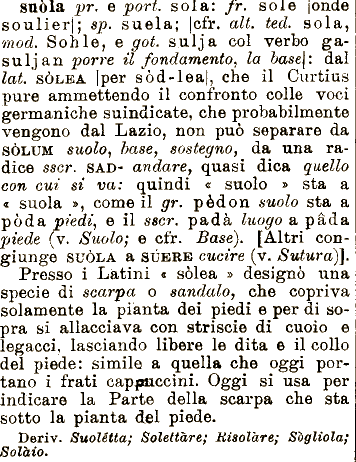 suòla pr. e port. sola: fr. sole |onde
soulier|; sp. suela; |cfr. alt. ted. sola,
mod. Sohle, e got. sulja col verbo ga-
suljan porre il fondamento, la base|: dal
lat. SÒLEA |per sòd-lea|, che il Curtius
pure ammettendo il confronto colle voci
germaniche suindicate, che probabilmente
vengono dal Lazio, non può separare da
SÒLUM suolo, base, sostegno, da una ra-
dice sscr. SAD- andare, quasi dica quello
con cui si va: quindi « suolo » sta a
« suola », come il gr. pèdon suolo sta a
pòda piedi, e il sscr. padà luogo a pâda
piede (v. Suolo; e cfr. Base). [Altri con-
giunge SUÒLA a SÚERE cucire (v. Sutura)].
Presso i Latini « sòlea » designò una
specie di scarpa o sandalo, che copriva
solamente la pianta dei piedi e per di so-
pra si allacciava con striscie di cuoio e
legacci, lasciando libere le dita e il collo
del piede: simile a quella che oggi por-
tano i frati cappuccini. Oggi si usa per
indicare la Parte della scarpa che sta
sotto la pianta del piede.
Deriv. Suolétta; Solettàre; Risolàre; Sògliola;
Solàio.